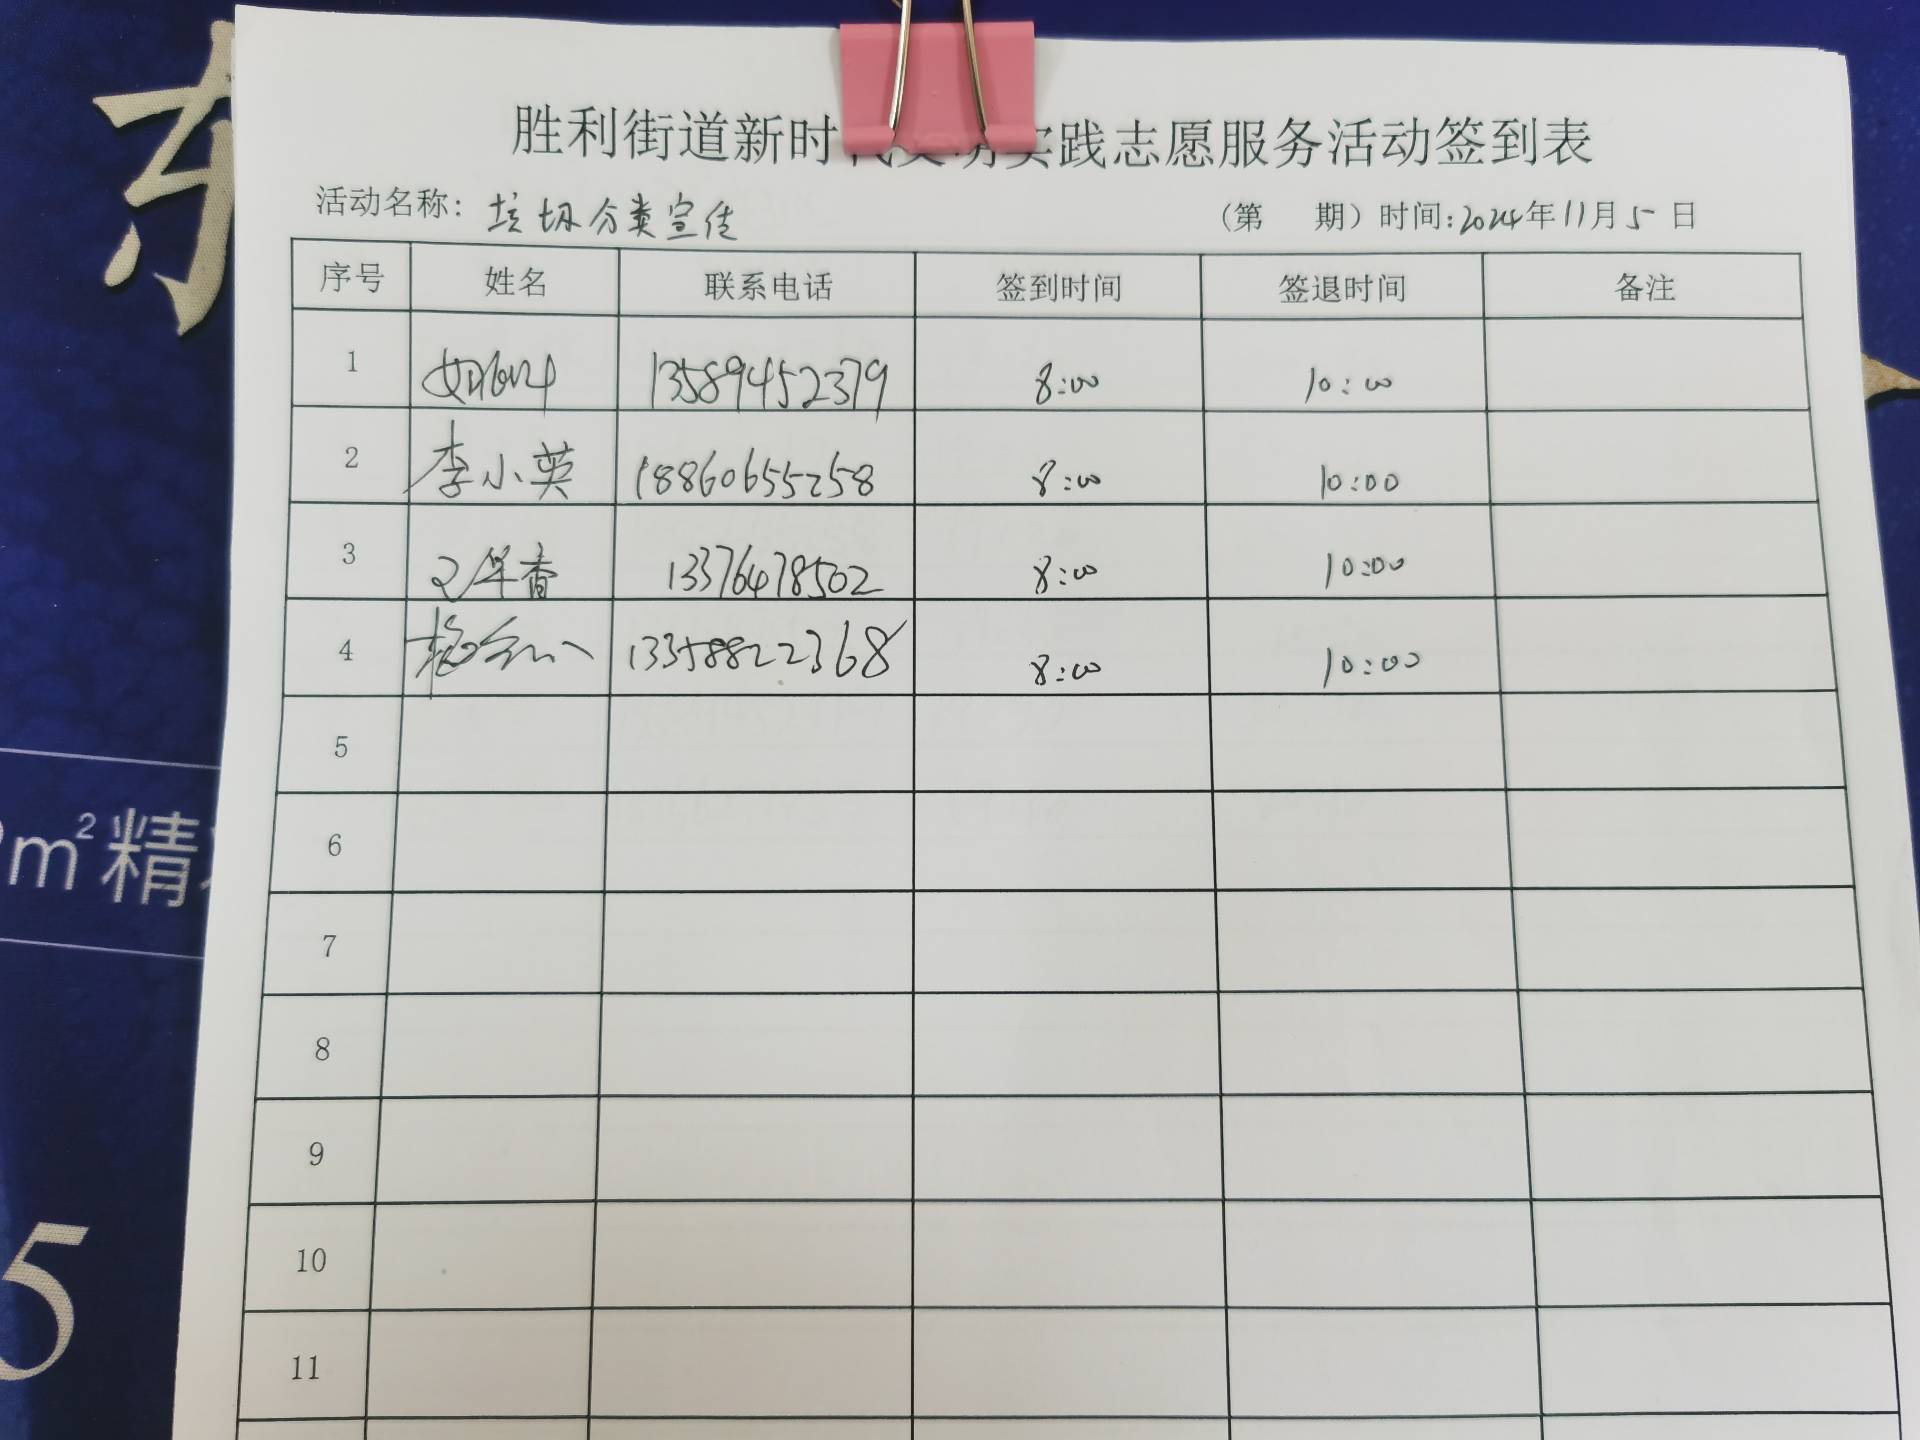 东
胜利街道新时代文明实践志愿服务活动签到表
活动名称: 垃圾分类宣传 (第 期) 时间:2024年11月5日
序号 姓名 联系电话 签到时间 签退时间 备注
1 13589452379 8:00 10:00
2 李小英 18860655258 8:00 10:00
3 13376478502 8:00 10:00
4 13358822368 8:00 10:00
5
6
m²精
7
8
9
10
5
11